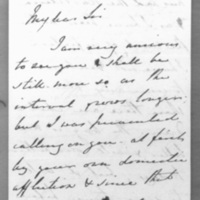 My dear Sir
I am very anxious
to see you & shall be
still more so as the
interval grows longer
but I was prevented
calling on you at first
by your own domestic
affliction & since that